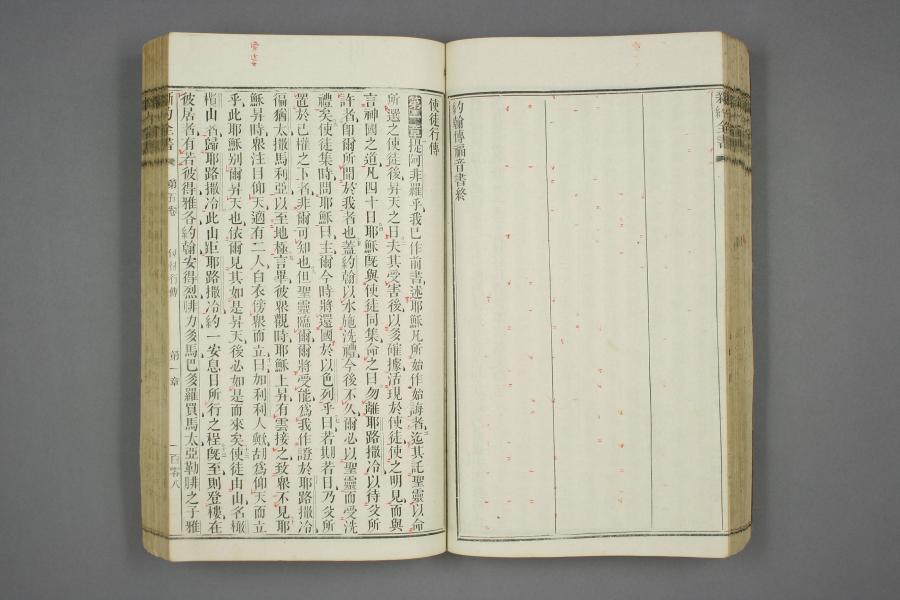 新約全書
約翰傳福音書終
使徒行傳
第一章提阿非羅乎我已作前書述耶穌凡所始作始誨者迄其託聖靈以命
所選之使徒後昇天之日夫其受害後以多確據活現於使徒使之明見而與
言神國之道凡四十日耶穌旣與使徒同集命之曰勿離耶路撒冷以待父所
許者卽爾所聞於我者也蓋約翰以水施洗禮今後不久爾必以聖靈而受洗
禮矣使徒集時問耶穌曰主爾今時將還國於以色列乎曰若期若日乃父所
置於己權之下者非爾可知也但聖靈臨爾爾將受能爲我作證於耶路撒冷
徧猶太撒馬利亞以至地極言畢彼衆觀時耶穌上昇有雲接之致衆不見耶
穌昇時衆注目仰天適有二人白衣傍衆而立曰加利利人歟胡爲仰天而立
乎此耶穌別爾昇天也依爾見其如是昇天後必如是而來矣使徒由山名橄
欖山者歸耶路撒冷此山距耶路撒冷約一安息日所行之程旣至則登樓在
彼居者有若彼得雅各約翰安得烈腓力多馬巴多羅買馬太亞勒腓之子雅
新約全書 第五卷 使徒行傳 第一章 一百零八